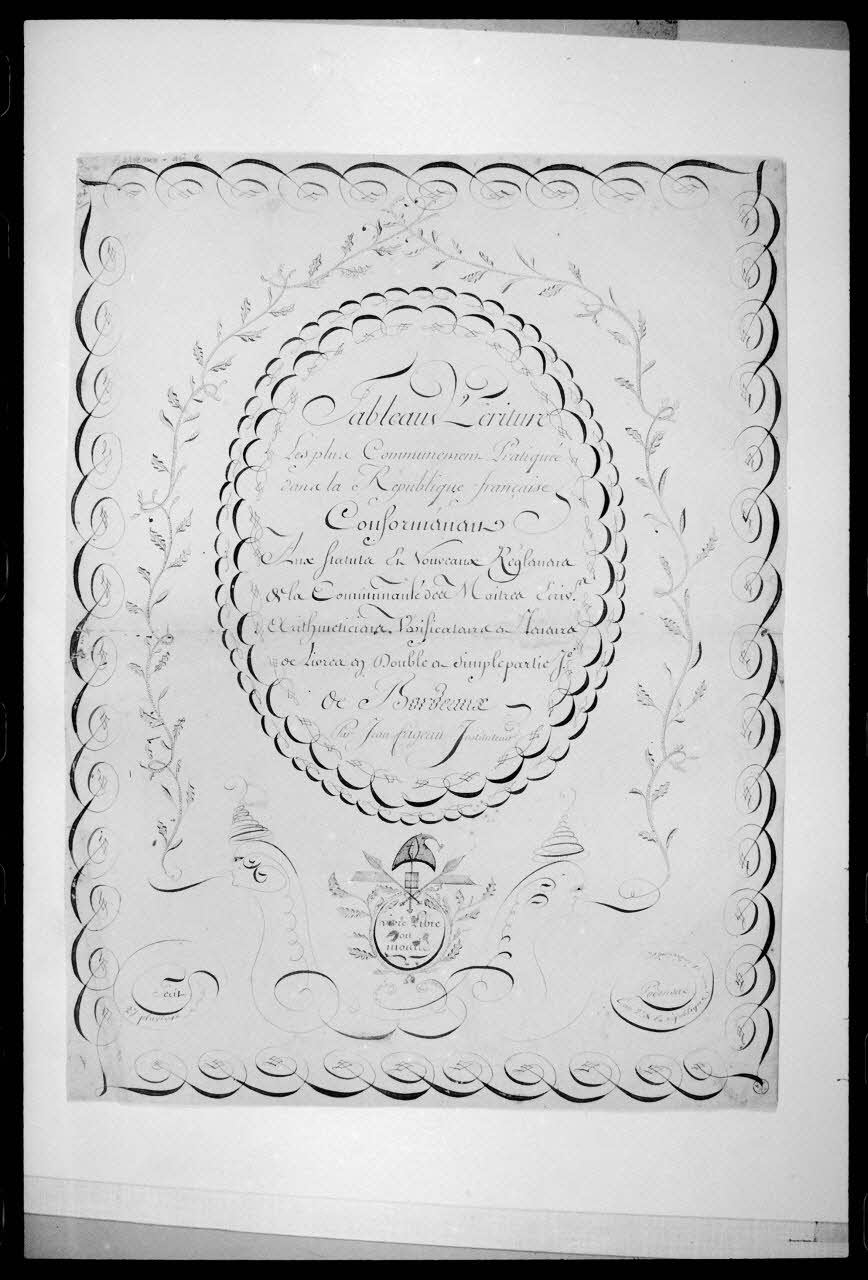 Tableau d'Ecriture
Les plus Communement Pratiquée
dans la République française
Conformémant
Aux statuts Et Nouveaux Réglemans
de la Communauté des Maitres Ecriv.
Arithmeticians Verificataurs
de Livres en Double et Simple partie
de Bordeaux
Par Jean Instituteur
vivre Libre
ou
mourir
Ecrit
27 pluviose
Podensac
La république